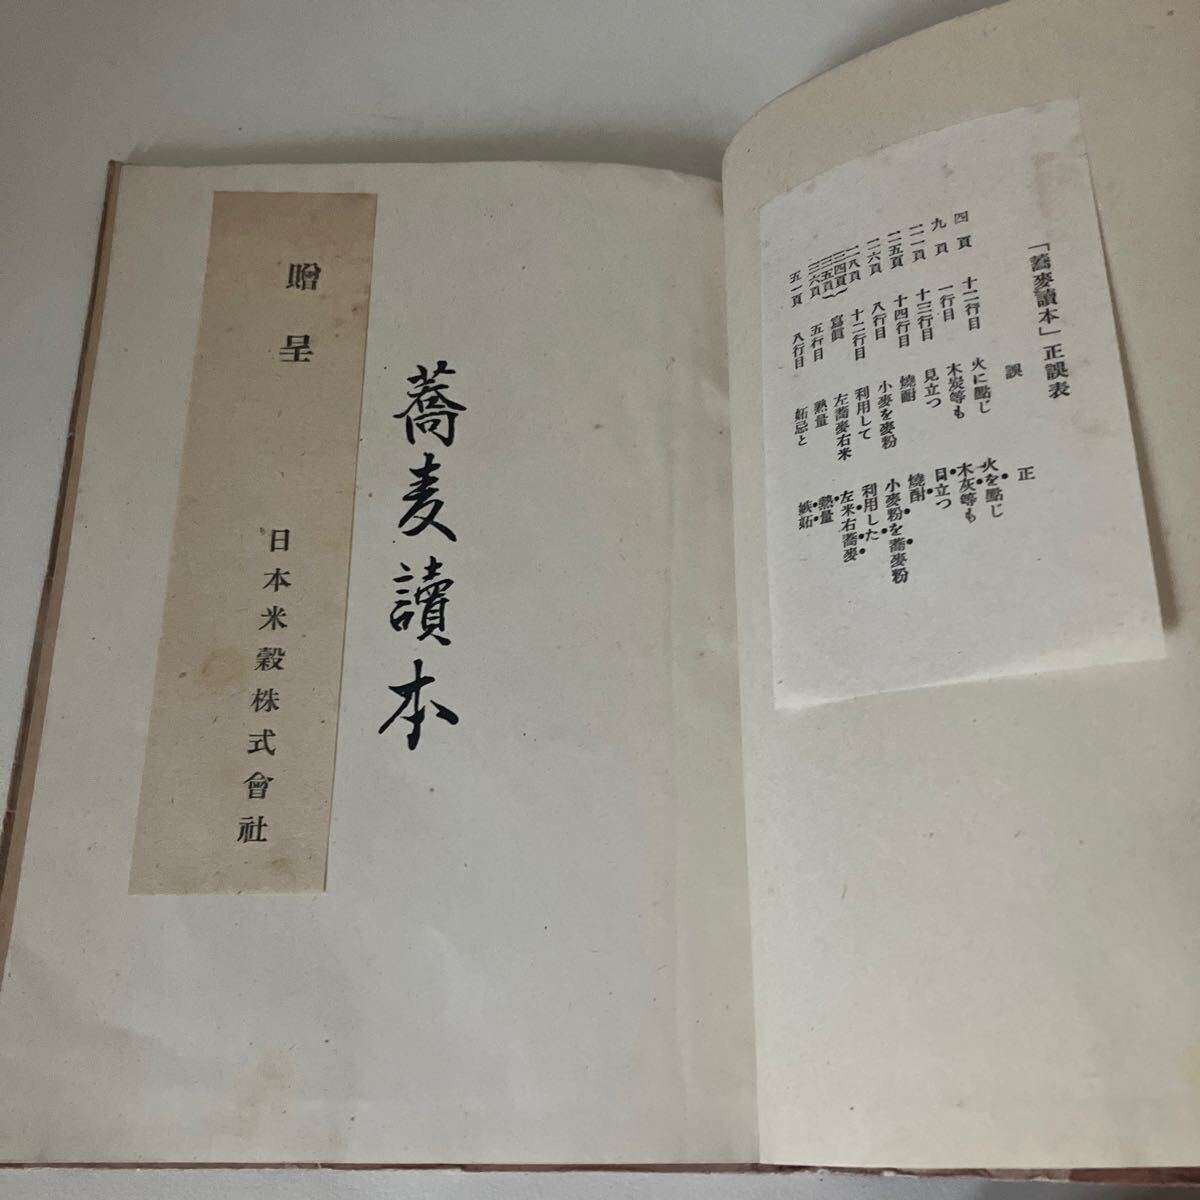 「蕎麥讀本」正誤表
誤 正
四頁 十二行目 火に點じ 火を點じ
九頁 一行目 木炭等も 木灰等も
一一頁 十三行目 見立つ 目立つ
一五頁 十四行目 燒酎 燒酎
一六頁 八行目 小麥を麥粉 小麥粉を蕎麥粉
一八頁 十二行目 利用して 利用した
三四頁 三五頁 寫眞 左蕎麥右米 左米右蕎麥
三六頁 五行目 熱量 熱量
五一頁 八行目 妬忌と 嫉妬
蕎麦讀本
贈呈 日本米穀株式會社